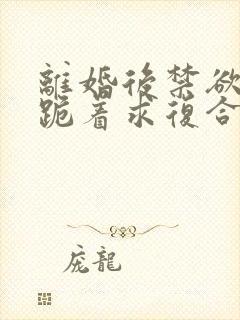 離婚後禁欲
跪着求復合
庞龍